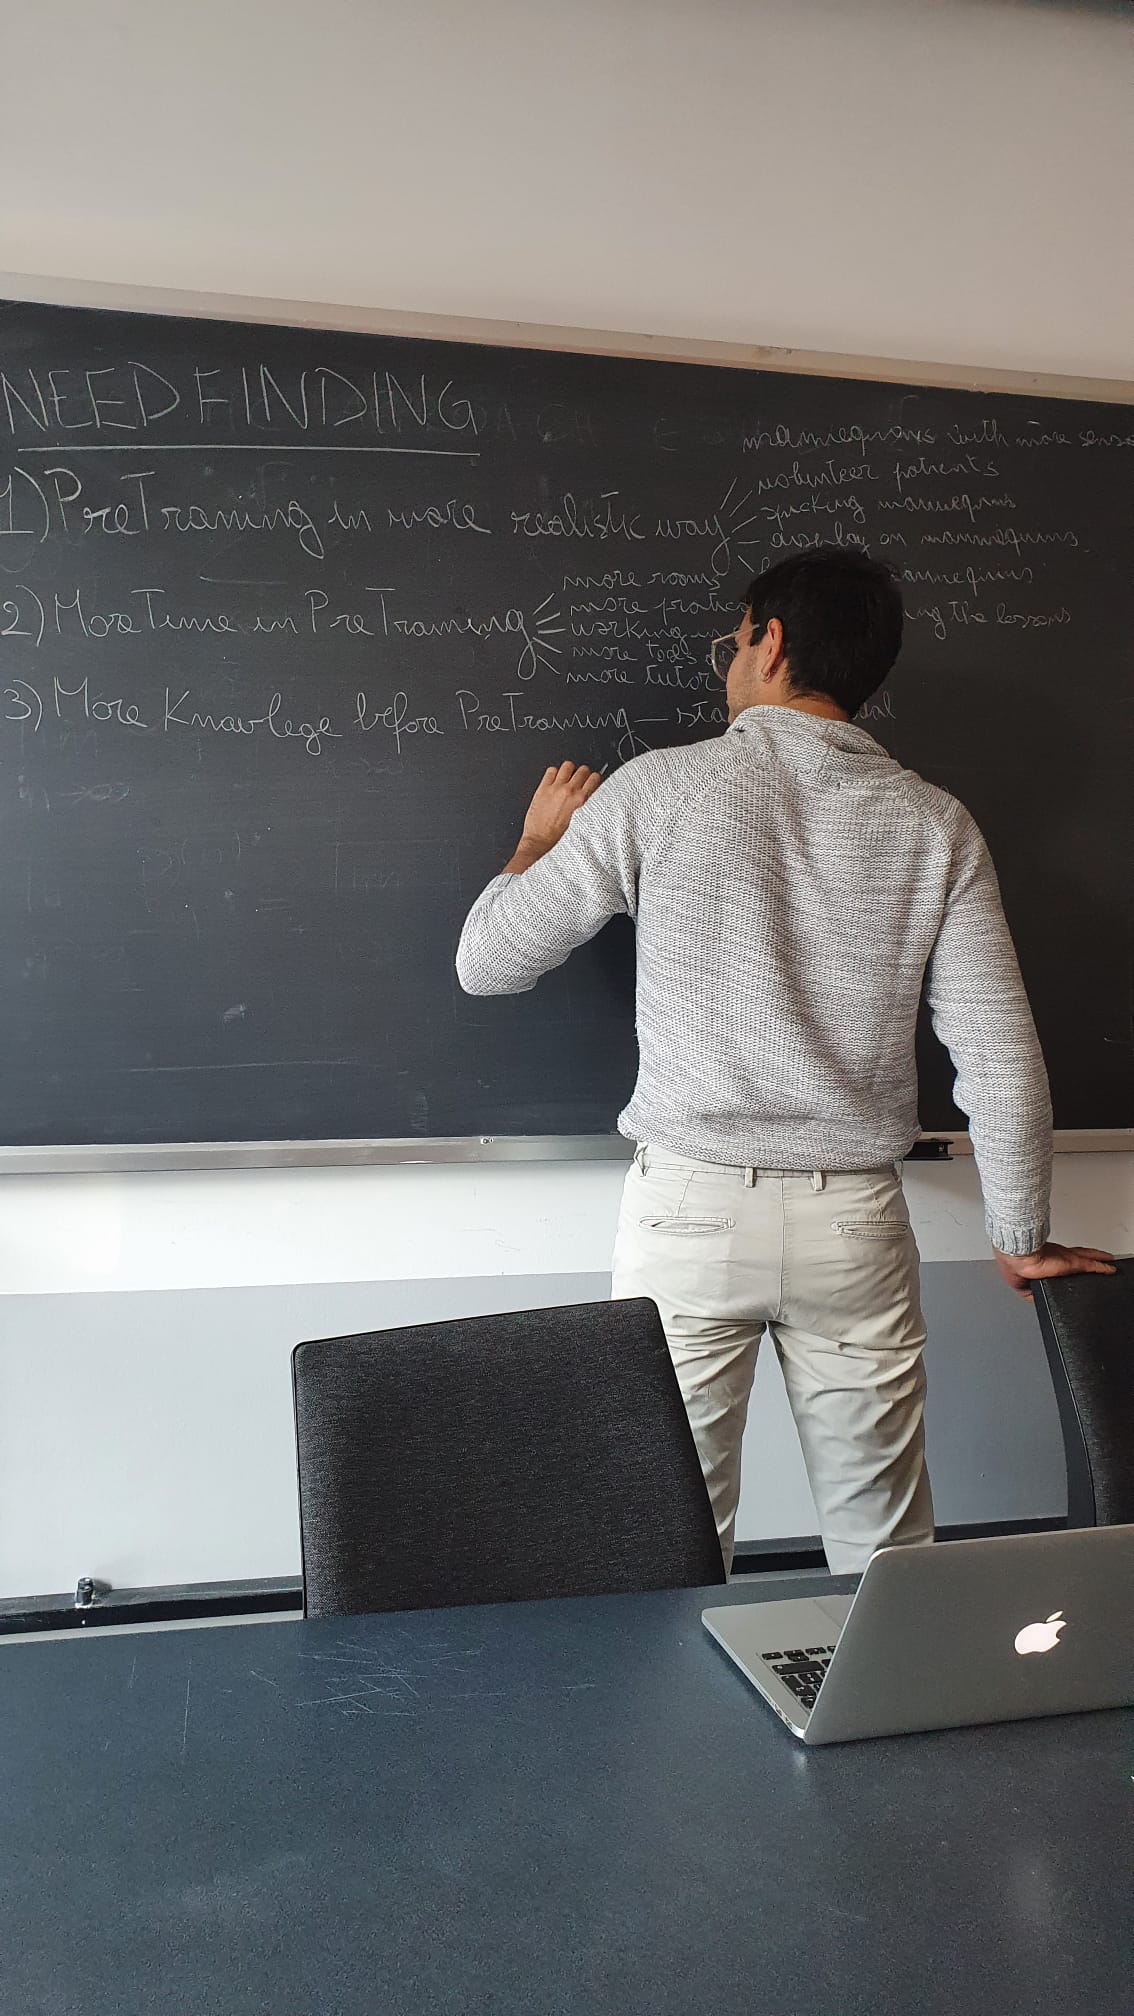 NEEDFINDING
1) PreTraning in more realistic way
mannequins with more senso
volunteer patients
mannequins
display on mannequins
mannequins
ing the lessons
2) More Time in PreTraining
more rooms
more pratic
working in
more tools
more tutor
3) More Knowlege before PreTraining